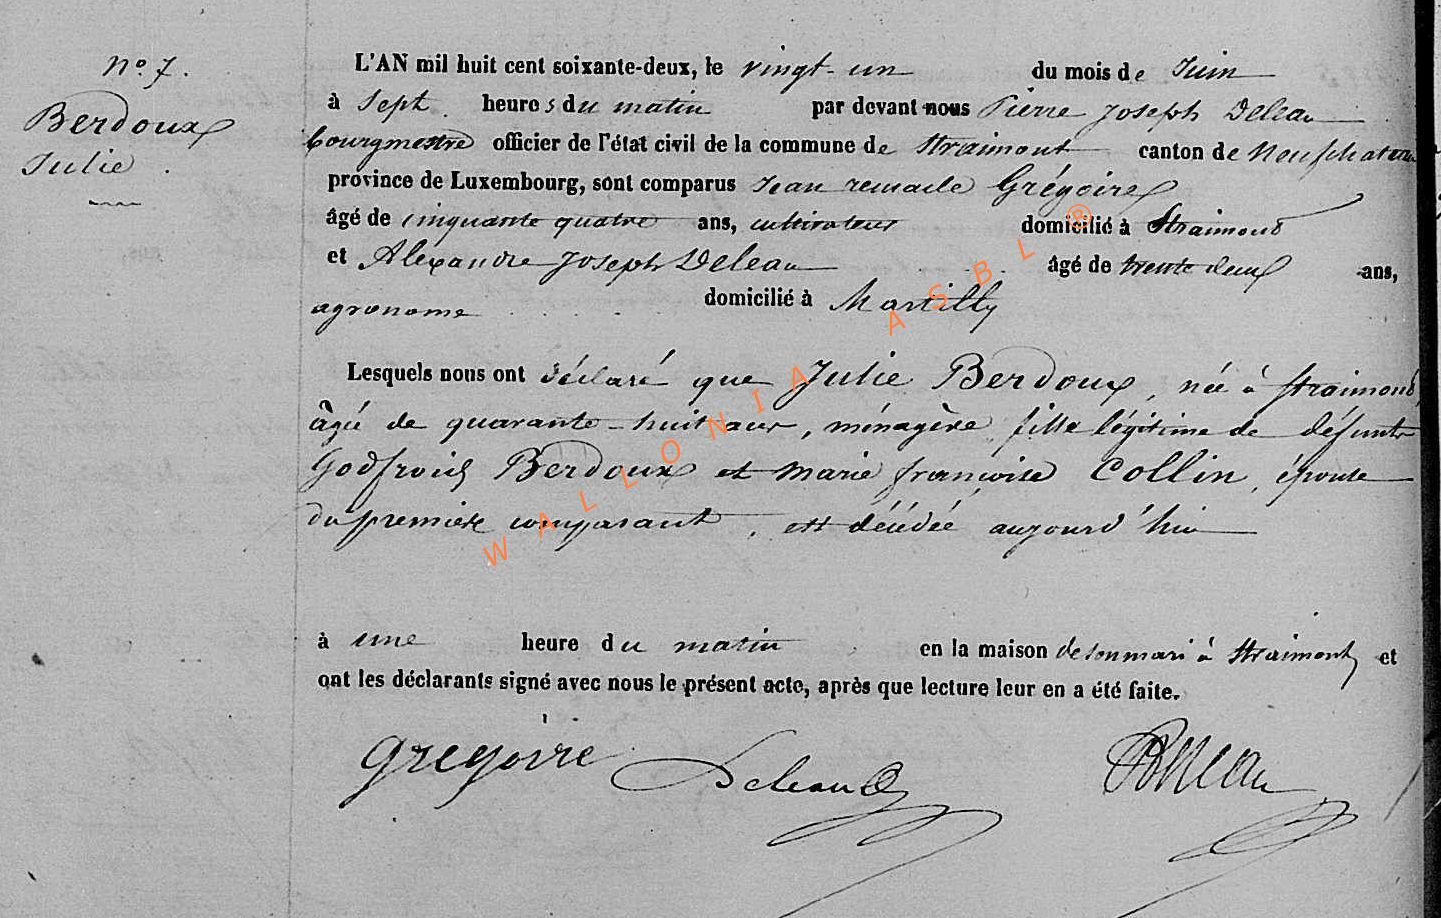 nº 7.
Berdoux
Julie
L'AN mil huit cent soixante-deux, le vingt-un du mois de Juin
à Sept heures du matin par devant nous Pierre Joseph Deleau
bourgmestre officier de l'état civil de la commune de Straimont canton de Neufchateau
province de Luxembourg, sont comparus Jean remacle Grégoire
âgé de cinquante quatre ans, cultivateur domicilié à Straimont
et Alexandre Joseph Deleau âgé de trente deux ans,
agronome domicilié à Martilly
Lesquels nous ont déclaré que Julie Berdoux, née à Straimont,
âgée de quarante-huit ans, ménagère fille légitime de défunts
Godfroid Berdoux et Marie françoise Collin, épouse
du premier comparant, est décédée aujourd'hui
à une heure du matin en la maison de son mari à Straimont, et
ont les déclarants signé avec nous le présent acte, après que lecture leur en a été faite.
Gregoire Deleau Deleau
WALLONIA ASBL ®